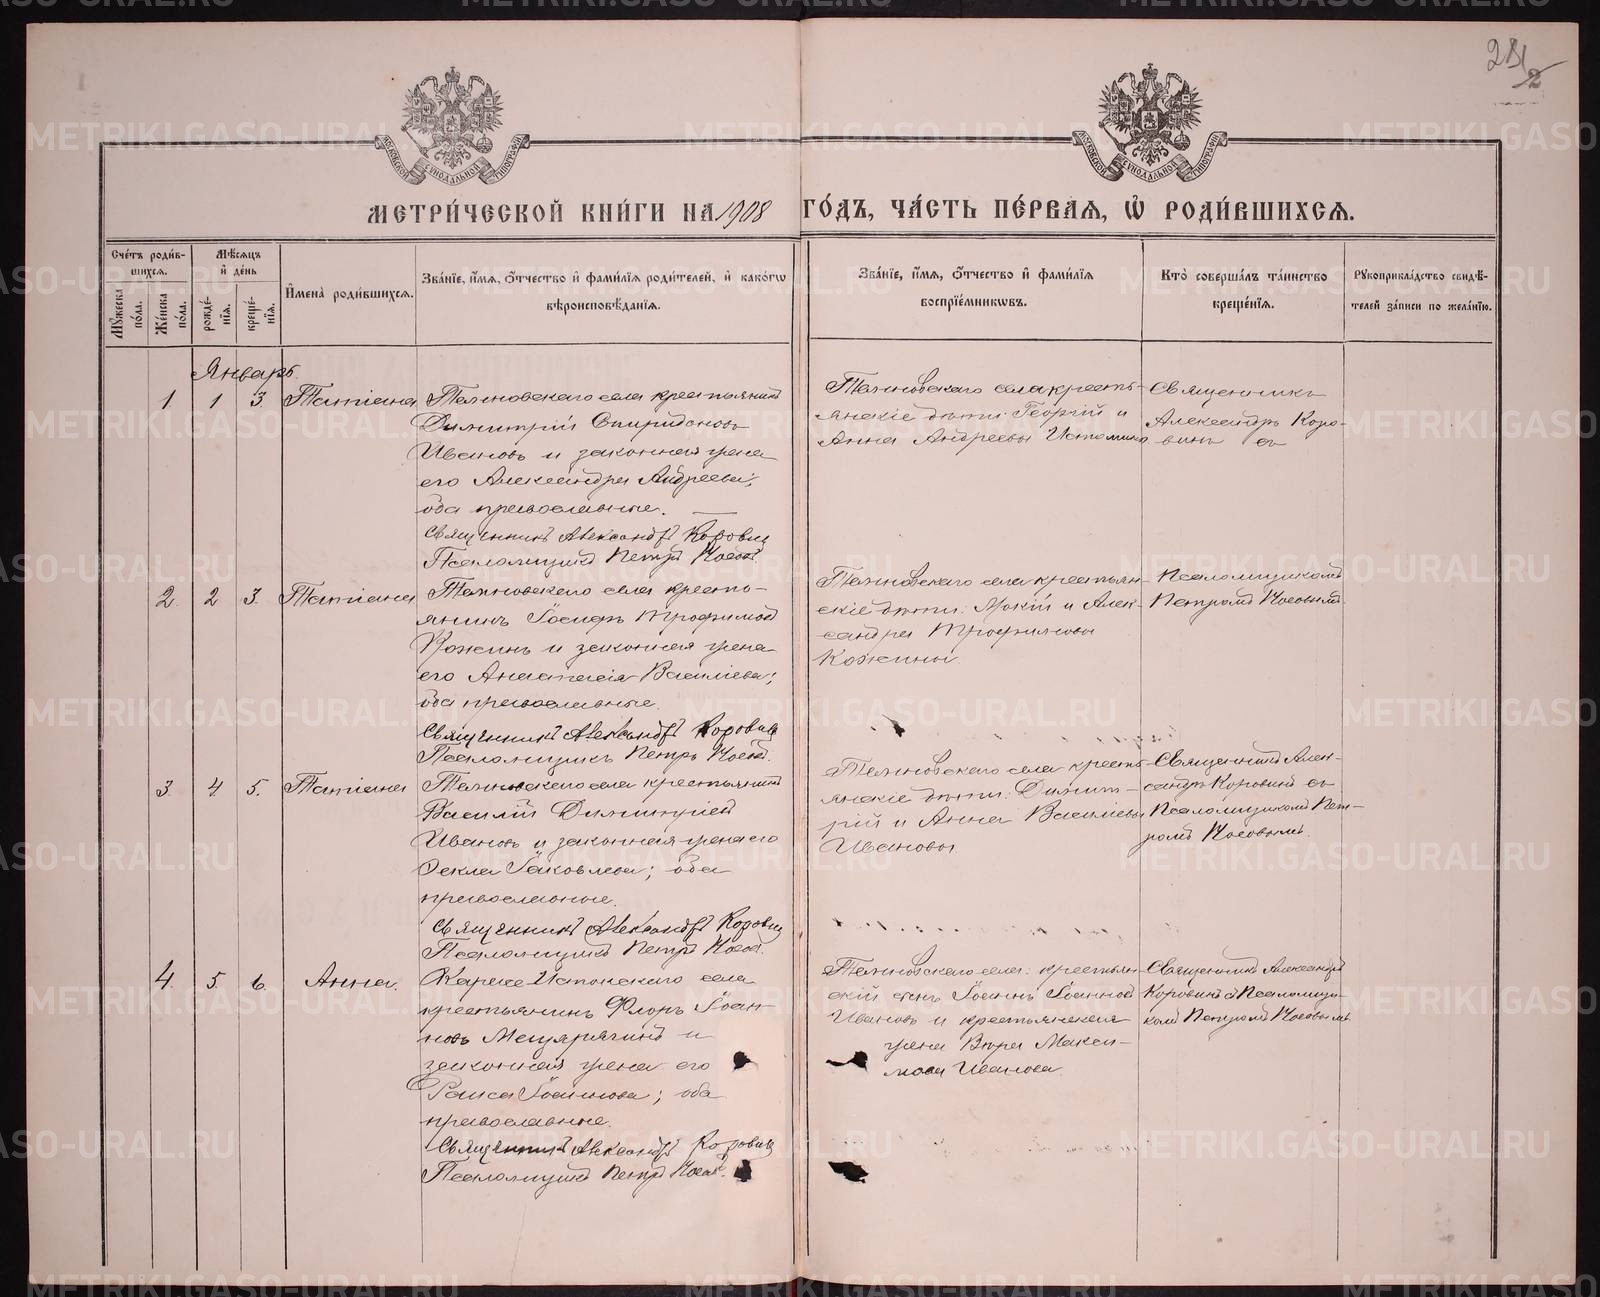 2
МОСКОВСКОЙ СѴНОДАЛЬНОЙ ТИПОГРАФІИ
МОСКОВСКОЙ СѴНОДАЛЬНОЙ ТИПОГРАФІИ
МЕТРИ́ЧЕСКОЙ КНИ́ГИ НА 1908 ГО́ДЪ, ЧА́СТЬ ПЕ́РВАѦ, Ѡ҆ РОДИ́ВШИХСѦ.
Сче́тъ роди́в-
шихсѧ.
Мѣ́сѧцъ
и҆ де́нь
Мꙋ́жеска
по́ла.
Же́нска
по́ла.
рожде́-
нїѧ.
креще́-
нїѧ.
И҆мена̀ роди́вшихсѧ.
Зва́нїе, и҆́мѧ, ѻ҆́тчество и҆ фами́лїѧ роди́телей, и҆ како́гѡ
вѣроисповѣ́данїѧ.
Зва́нїе, и҆́мѧ, ѻ҆́тчество и҆ фами́лїѧ
воспрїе́мникѡвъ.
Кто̀ соверша́лъ та́инство
креще́нїѧ.
Рꙋкоприкла́дство свидѣ́-
телей за́писи по жела́нїю.
Январь.
1. 1 3. Татіана
села крестьянинъ
Димитрій Спиридоновъ
Ивановъ и законная жена
его Александра Андреева;
оба православные.
Священникъ Александръ Коровин
Псаломщикъ Петръ Носовъ.
села крестьянскіе дѣти: Георгій и
Анна Андреевы Истомины
Священникъ
Александръ Коро-
винъ съ
2. 2 3. Татіана
села кресть-
янинъ Іосифъ Трофимовъ
Кожинъ и законная жена
его Анастасія Васильева;
оба православные.
Священникъ Александръ Коровин
Псаломщикъ Петръ Носовъ.
села крестьян-
скіе дѣти: Мокій и Алек-
сандра Трофимовы
Кожины.
Псаломщикомъ
Петромъ Носовымъ
3. 4. 5. Татіана
села крестьянинъ
Василій Димитріевъ
Ивановъ и законная жена его
Ѳекла Іаковлева; оба
православные.
Священникъ Александръ Коровин
Псаломщикъ Петръ Носовъ.
села кресть-
янскіе дѣти: Димит-
рій и Анна Васильевы
Ивановы
Священникъ Алек-
сандръ Коровинъ съ
Псаломщикомъ Пет-
ромъ Носовымъ.
4. 5. 6. Анна.
села
крестьянинъ Флоръ Іоан-
новъ Мещерягинъ и
законная жена его
Раиса Іоаннова; оба
православные.
Священникъ Александръ Коровин
Псаломщикъ Петръ Носовъ.
села: крестьян-
скій сынъ Іоаннъ Іоанновъ
Ивановъ и крестьянская
жена Вѣра Макси-
мова Иванова.
Священникъ Александръ
Коровинъ съ Псаломщи-
комъ Петромъ Носовымъ.
METRIKI.GASO-URAL.RU